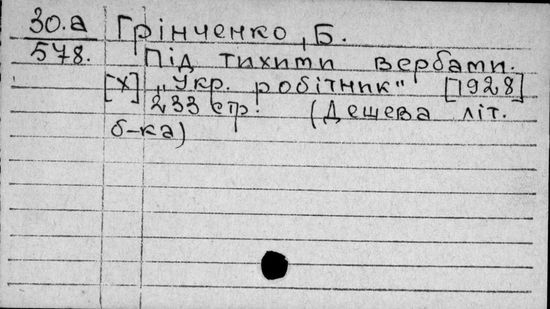 30.а Грінченко, Б.
578. Під тихими вербами.
[Х] „Укр. робітник" [1928]
233 стр. (Дешева літ.
б-ка)